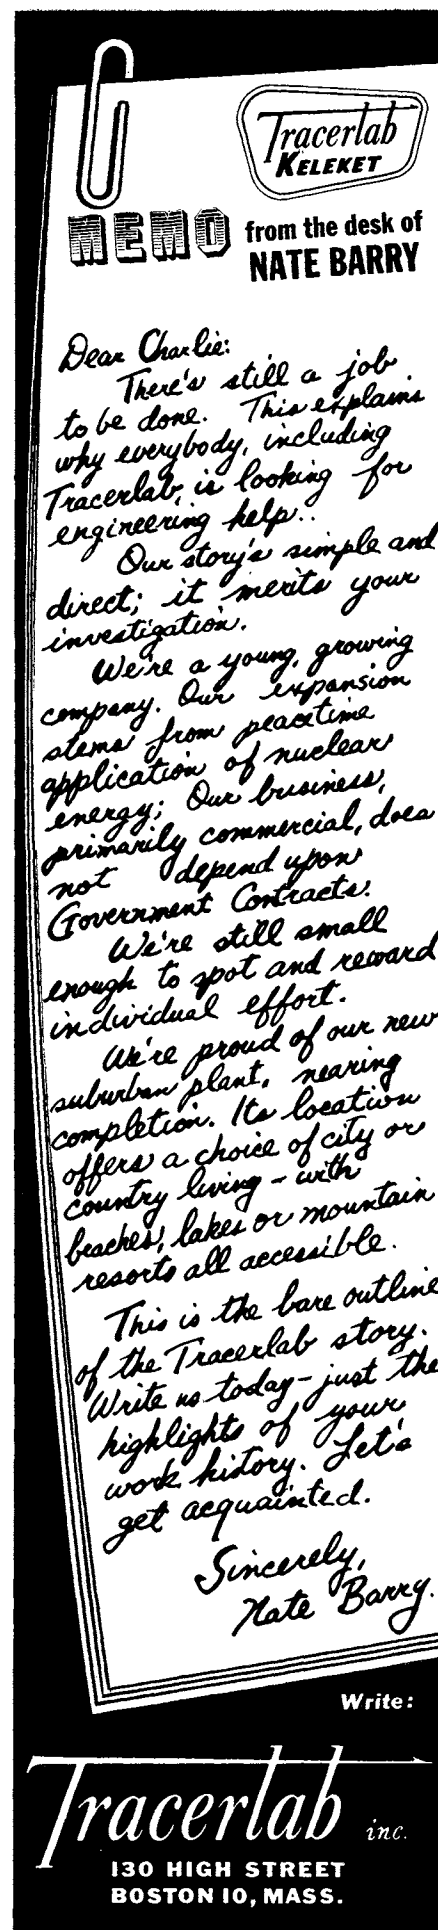 Tracerlab
KELEKET
MEMO from the desk of
NATE BARRY
Dear Charlie:
There's still a job
to be done. This explains
why everybody, including
Tracerlab, is looking for
engineering help..
Our story's simple and
direct; it merits your
investigation.
We're a young, growing
company. Our expansion
stems from peacetime
application of nuclear
energy; Our business,
primarily commercial, does
not depend upon
Government Contracts.
We're still small
enough to spot and reward
individual effort.
We're proud of our new
suburban plant, nearing
completion. Its location
offers a choice of city or
country living - with
beaches, lakes or mountain
resorts all accessible.
This is the bare outline
of the Tracerlab story.
Write us today - just the
highlights of your
work history. Let's
get acquainted.
Sincerely,
Nate Barry.
Write:
Tracerlab inc.
130 HIGH STREET
BOSTON 10, MASS.